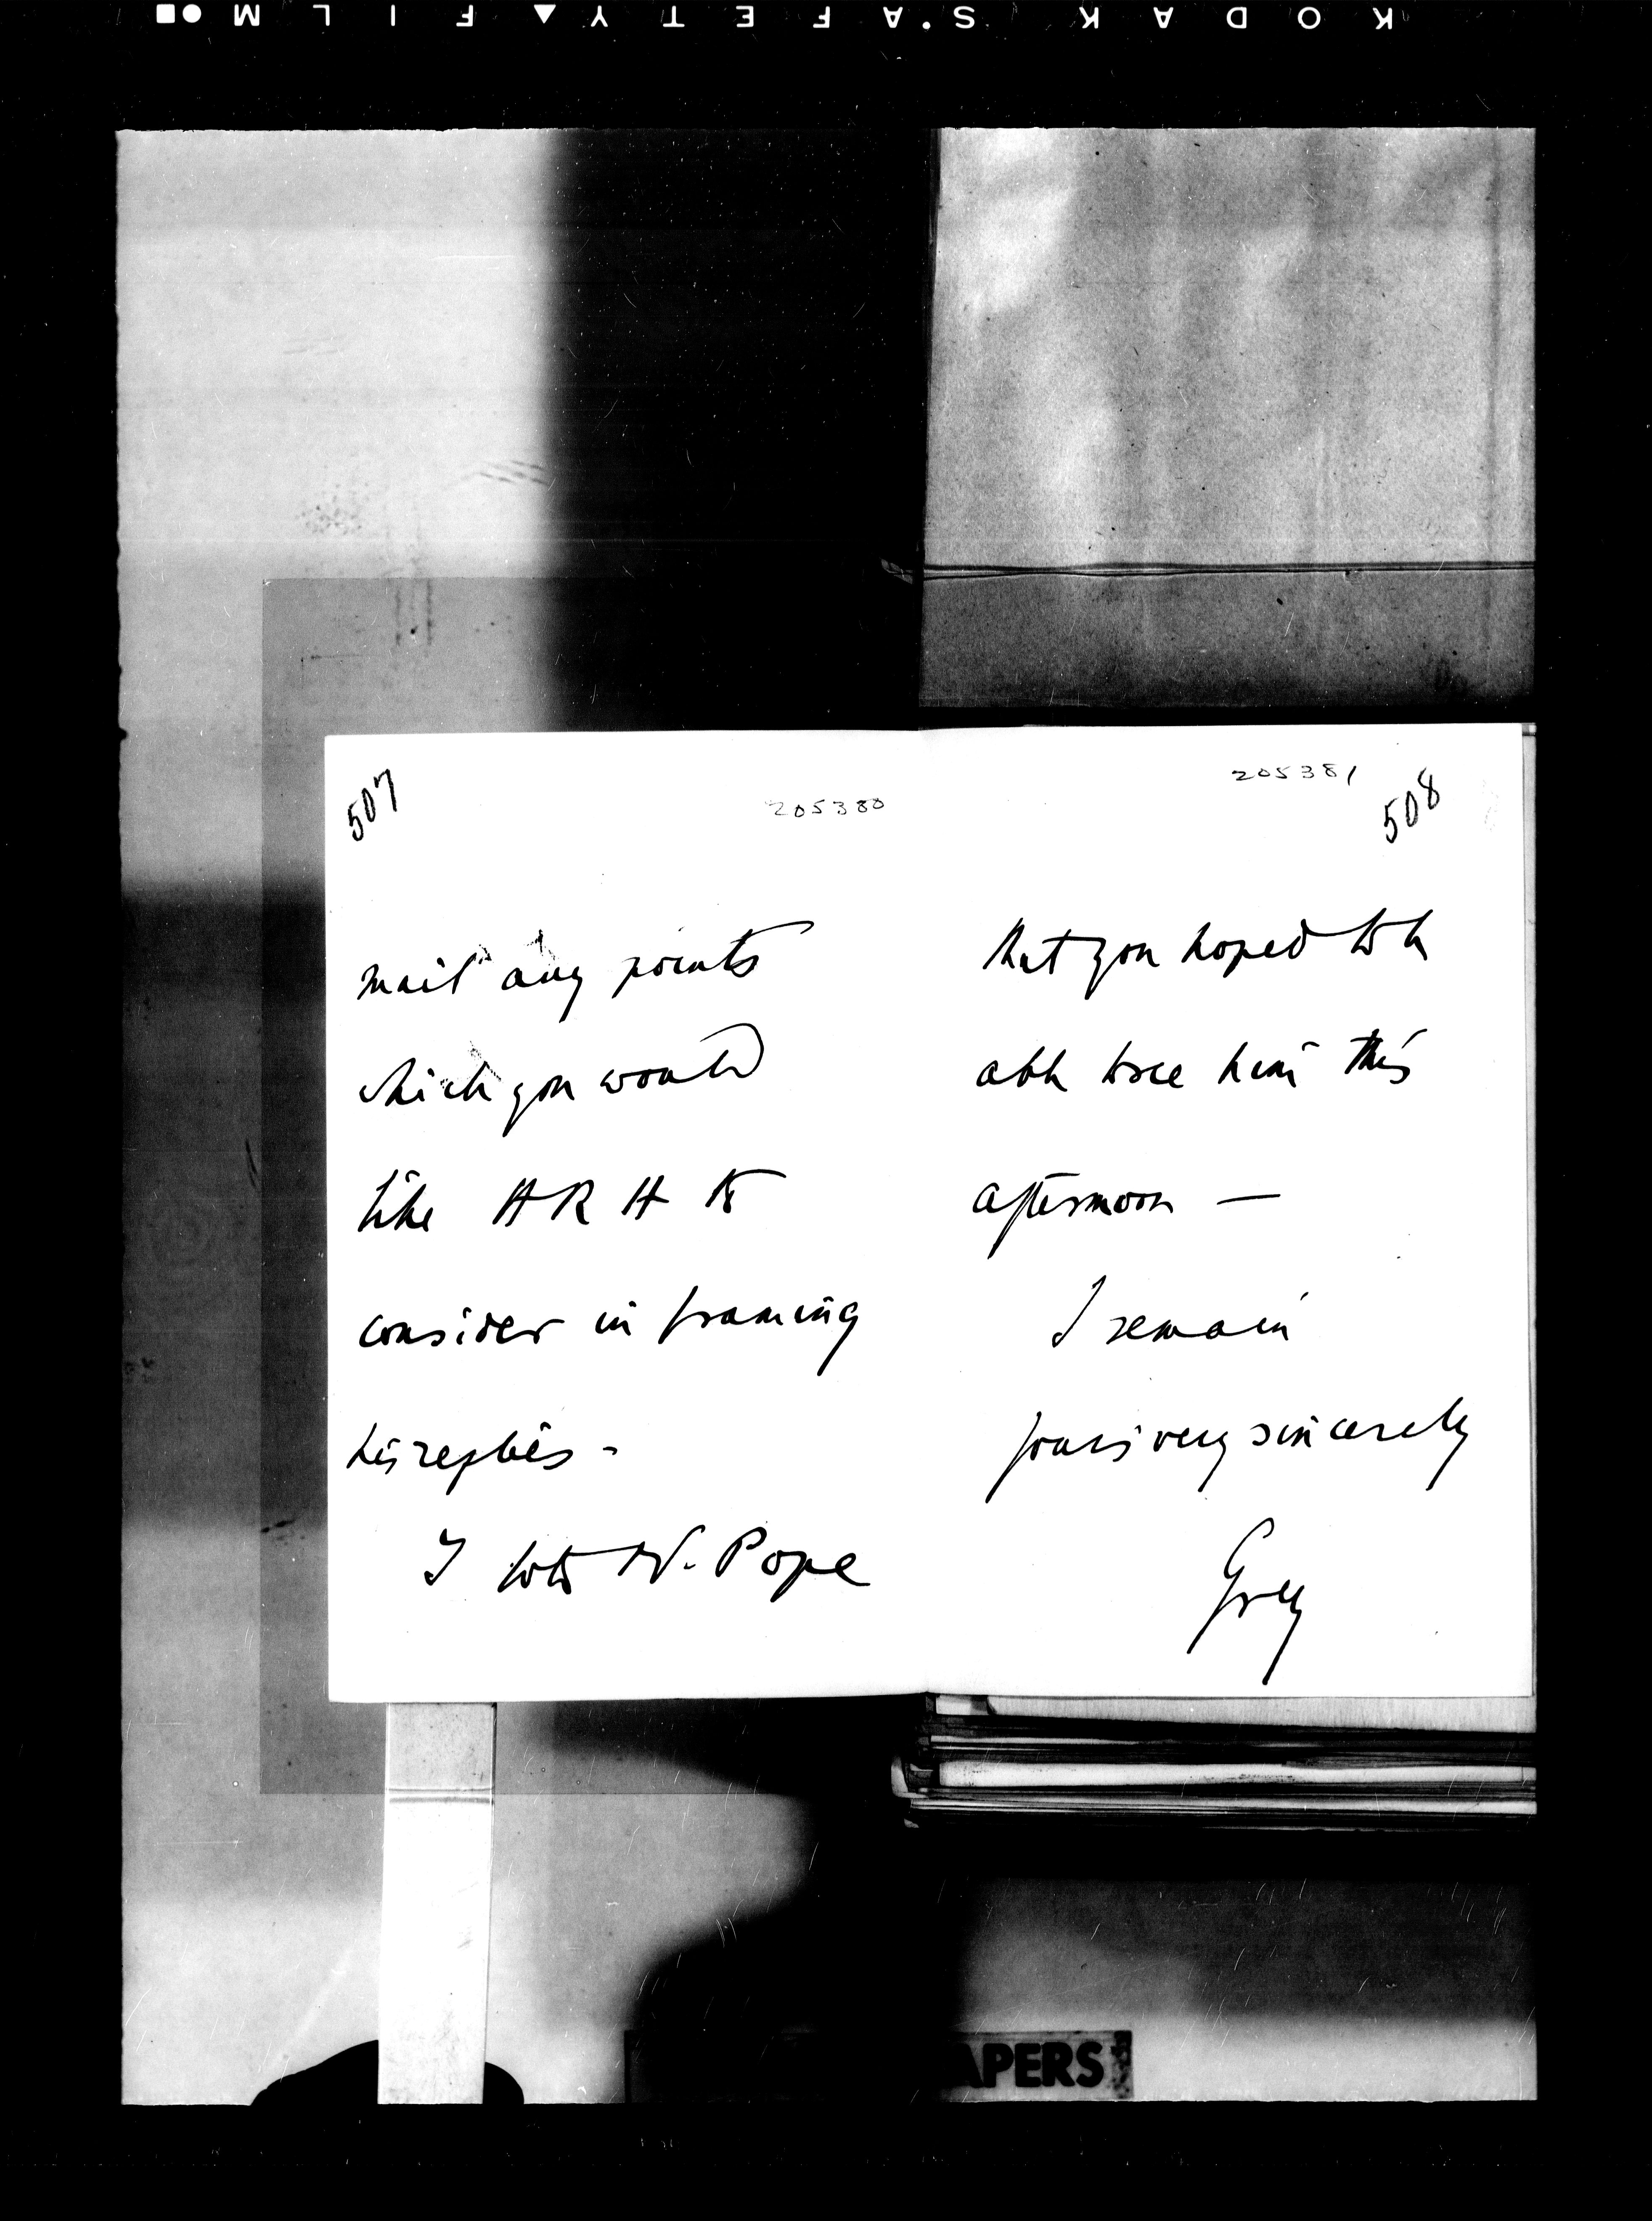 KODAK S'AFETY▲FILM
507
205380
mail any points
which you would
like HRH to
consider in framing
his replies -
I told W. Pope
205381
508
that you hoped to be
able to see him this
afternoon —
I remain
Yours very sincerely
Grey
APERS